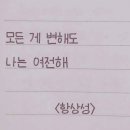 모든 게 변해도
나는 여전해
<항상성>